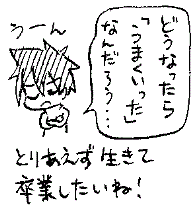 うーん
どうなったら
「うまくいった」
なんだろう…
とりあえず生きて
卒業したいね!